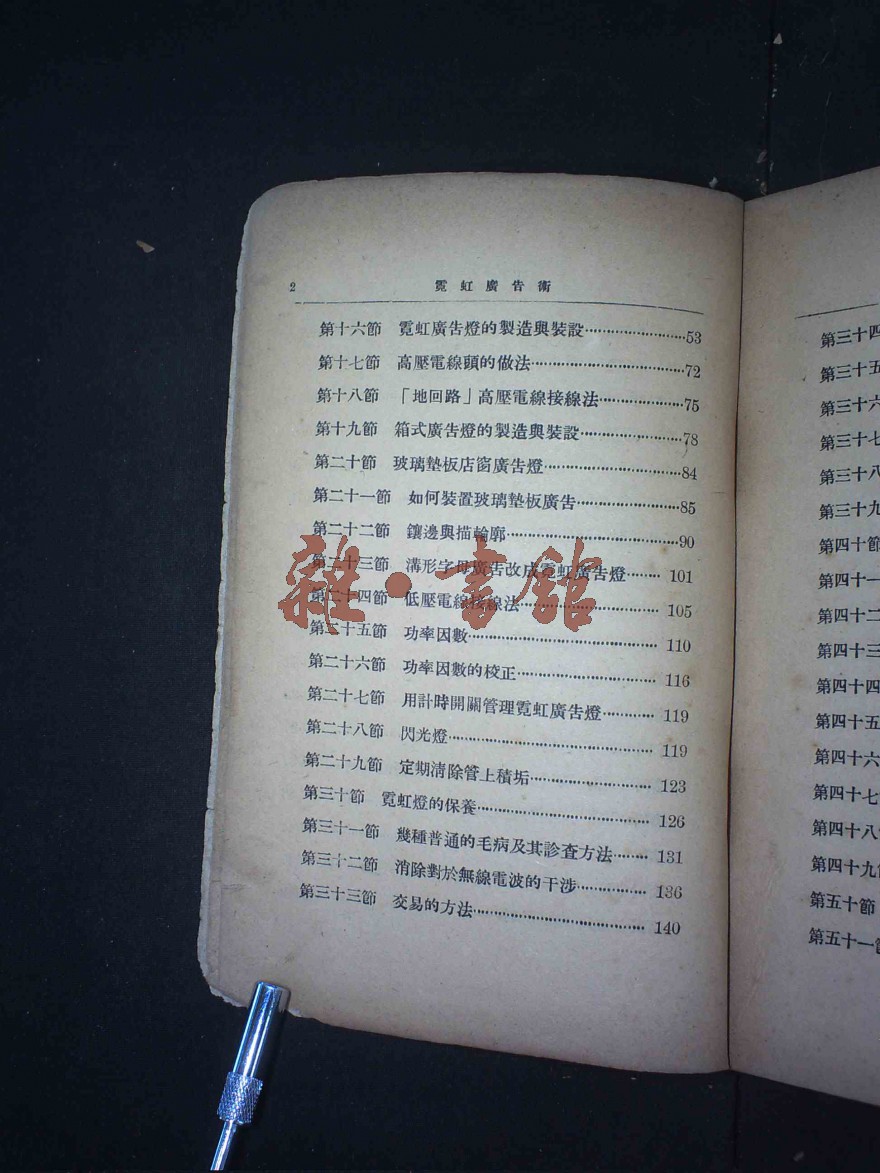 2 霓虹廣告術
第十六節 霓虹廣告燈的製造與裝設……………………53
第十七節 高壓電線頭的做法……………………72
第十八節 「地回路」高壓電線接線法……………………75
第十九節 箱式廣告燈的製造與裝設……………………78
第二十節 玻璃墊板店窗廣告燈……………………84
第二十一節 如何裝置玻璃墊板廣告……………………85
第二十二節 鑲邊與描輪廓……………………90
第二十三節 溝形字母廣告改成霓虹廣告燈……… 101
第二十四節 低壓電線接線法…………………… 105
第二十五節 功率因數…………………… 110
第二十六節 功率因數的校正…………………… 116
第二十七節 用計時開關管理霓虹廣告燈………… 119
第二十八節 閃光燈…………………… 119
第二十九節 定期清除管上積垢…………………… 123
第三十節 霓虹燈的保養…………………… 126
第三十一節 幾種普通的毛病及其診查方法……… 131
第三十二節 消除對於無線電波的干涉…………… 136
第三十三節 交易的方法…………………… 140
雜·書館
第三十四
第三十五
第三十六
第三十七
第三十八
第三十九
第四十節
第四十一
第四十二
第四十三
第四十四
第四十五
第四十六
第四十七
第四十八
第四十九
第五十節
第五十一